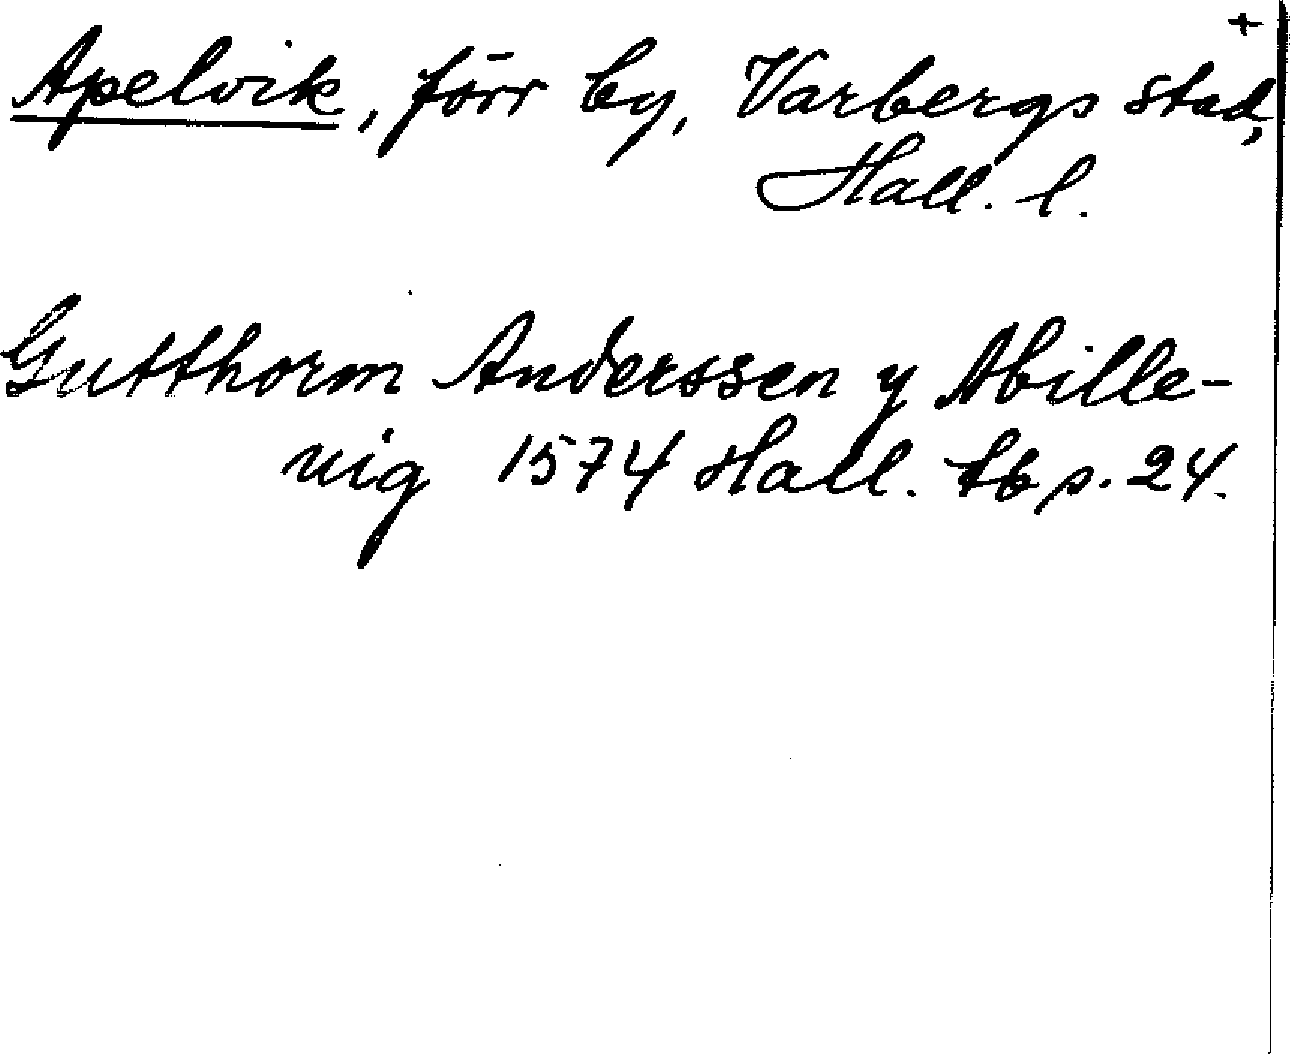 +
Apelvik, förr by, Varbergs stad,
Hall. l.
Gutthorm Anderssen y Abille-
uig 1574 Hall. tb p. 24.